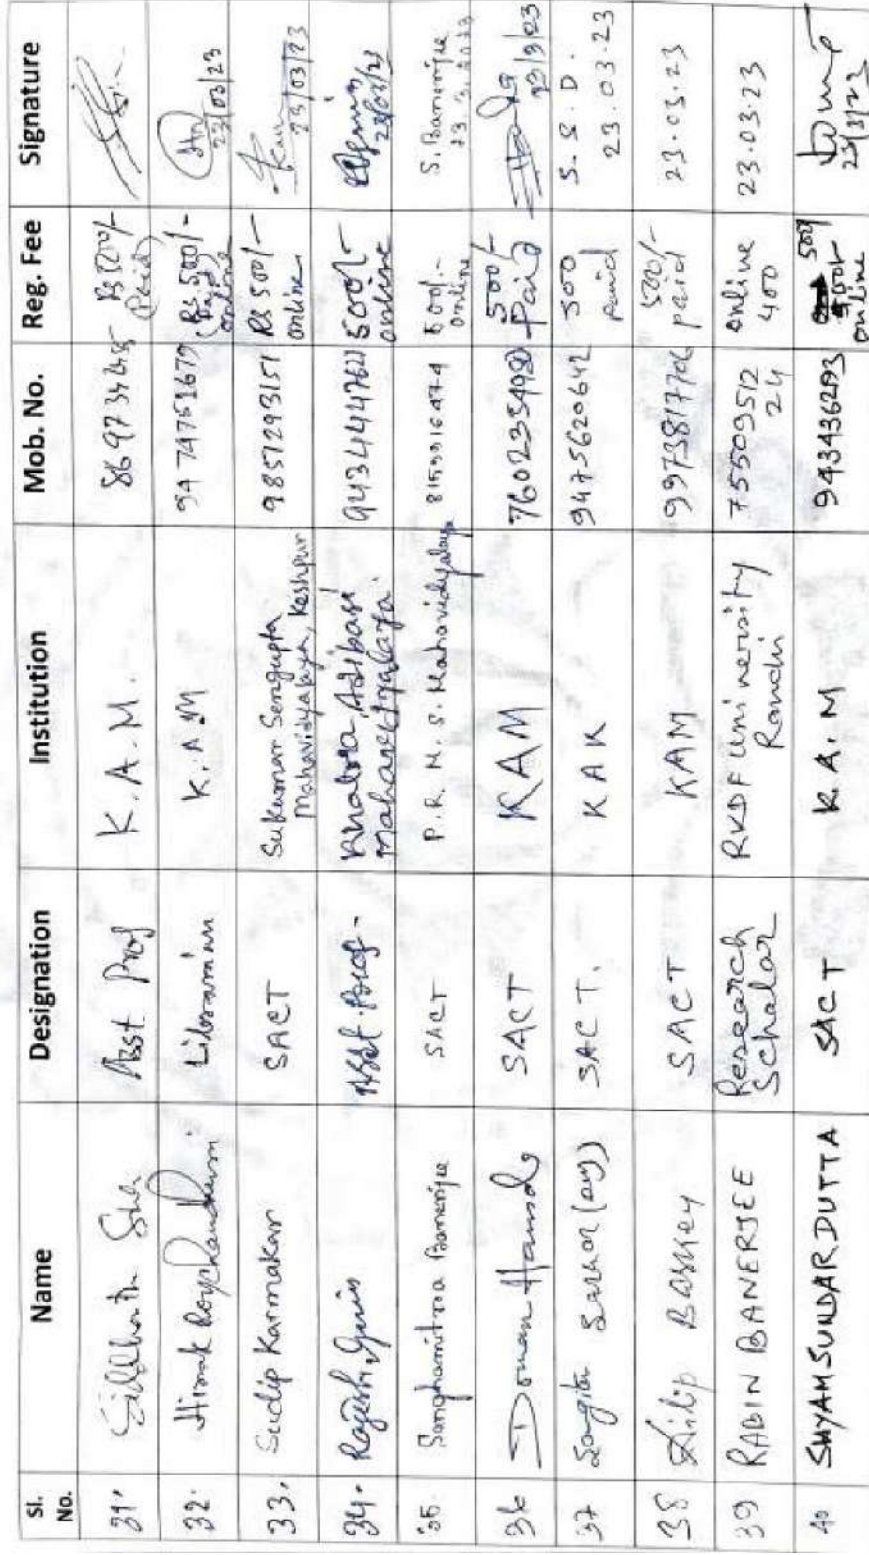 Sl. No. Name Designation Institution Mob. No. Reg. Fee Signature
31. Siddhartha Sha Asst Prof K.A.M. Rs 500/- (Paid)
32. Hirak Roychaudhuri Librarian K.A.M 9474751679 Rs 500/- online 23/03/23
33. Sudip Karmakar SACT Sukumar Sengupta Mahavidyalaya, Keshpur 9851293151 Rs 500/- online 23/03/23
34. Asst. Prof. Khatra Adibasi Mahavidyalaya. 500/- online
35. Sanghamitra Banerjee SACT P.R.M.S. Mahavidyalaya 500/- online S. Banerjee 23.3.2023
36 Doman Hansda SACT KAM 500/- Paid 23/3/23
37 Sangita Sarkar SACT. KAK 9475620642 500 paid S.S.D. 23.03.23
38 Dilip SACT KAM 500/- paid 23.03.23
39 RABIN BANERJEE Research Scholar RKDF University Ranchi 75509512 24 online 400 23.03.23
40 SHYAM SUNDAR DUTTA SACT K.A.M 943436293 500/- online 23/3/23